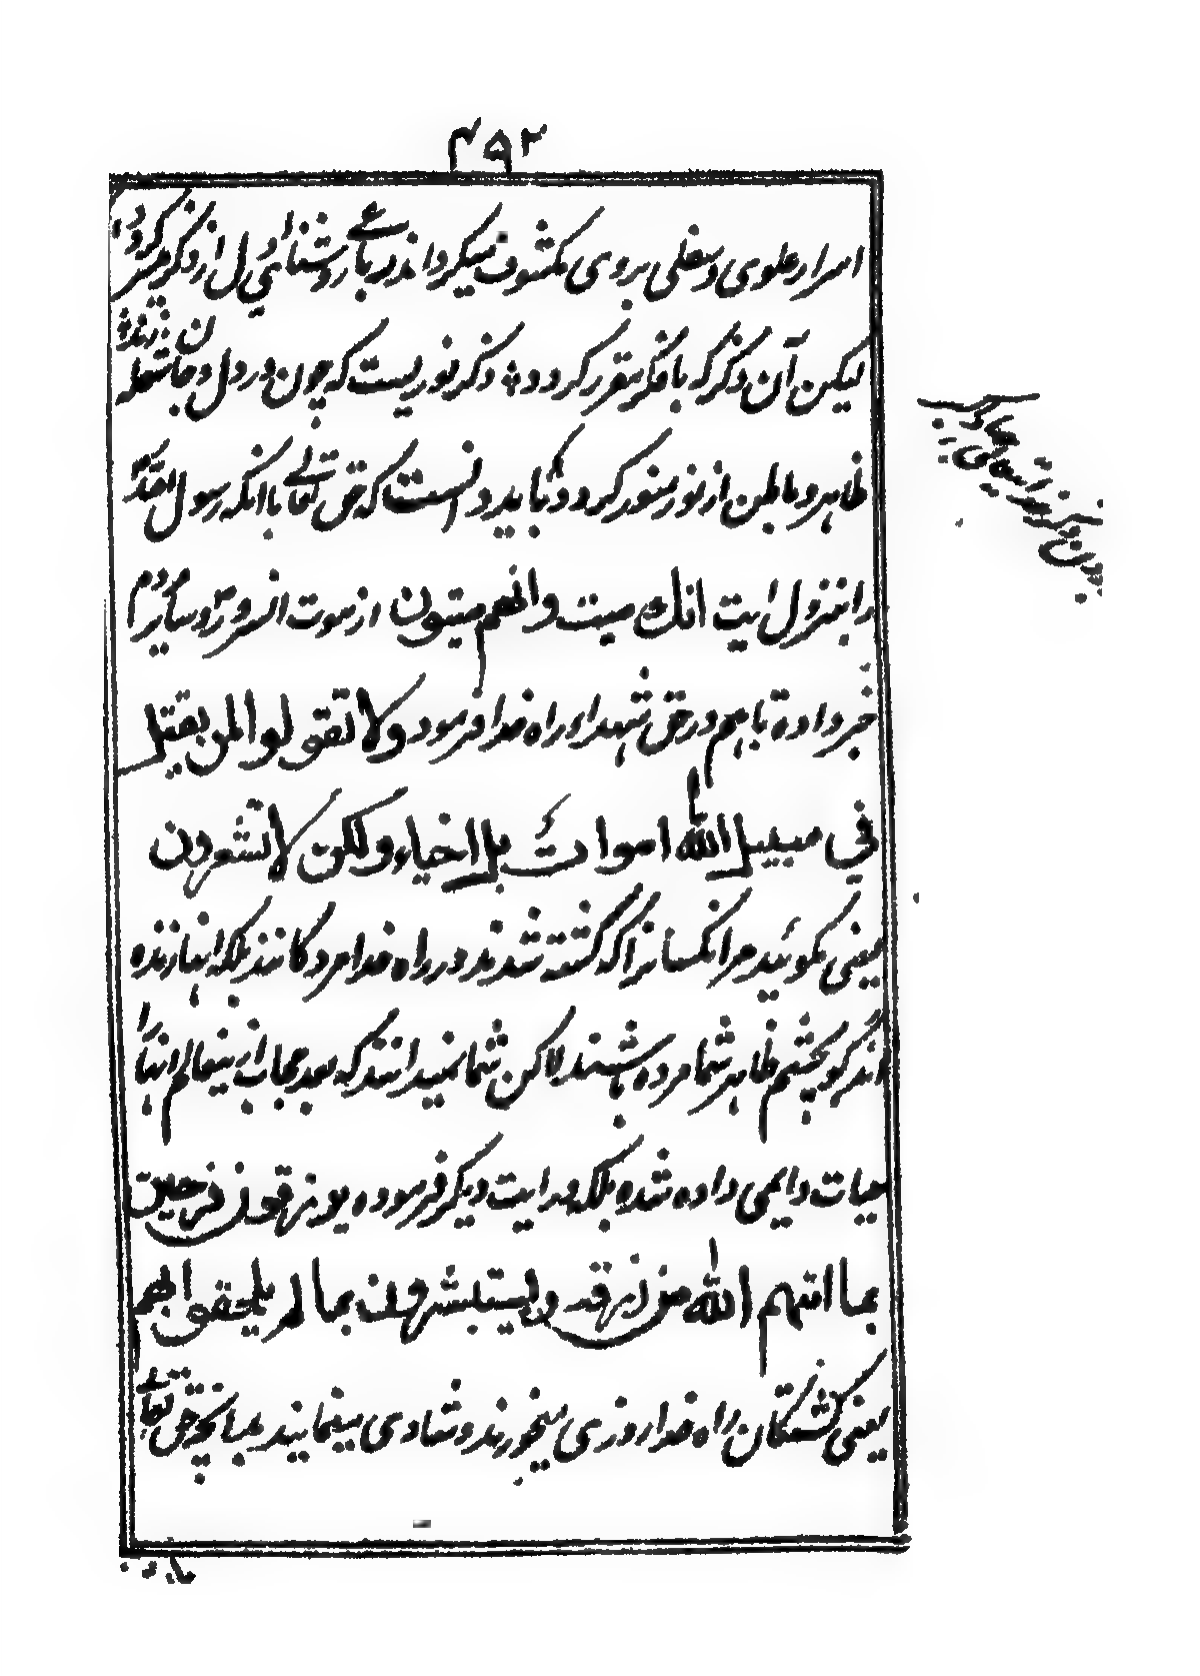 ۴۹۲
اسرار علوی و سفلی بروی مکشوف میکرداند رباعی روشنائی دل از ذکر میسر کردد
لیکن آن ذکر که با فکر مقرر کردد ذکر نوریست که چون در دل و جان شعله زند
ظاهر و باطن از نور منور کردد باید دانست که حق تعالی باانکه رسول
را بنزول ایت انك میت وانهم میتون از موت انسرور و سائر مردم
خبر داده باهم در حق شهداء راه خدا فرمود ولا تقولوا لمن یقتل
فی سبیل الله اموات بل احیاء ولکن لا تشعرون
یعنی مکوئید مرانکسانرا که کشته شدند در راه خدا مردکانند بلکه اینها زنده
اند کو بچشم ظاهر شما مرده باشند لاکن شما نمیدانند که بعد حجاب ازینعالم اینها را
حیات دایمی داده شده بلکه در ایت دیکر فرموده یرزقون فرحین
بما اتهم الله من رزقه ویستبشرون بما لم یلحقوا بهم
یعنی کشتکان راه خدا روزی میخورند و شادی مینمایند بمانچه حق تعالی
چون ذکر خدا تعالی